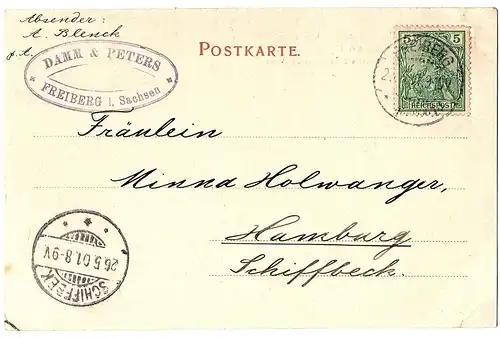 Absender:
A. Blenck
POSTKARTE.
DAMM & PETERS
FREIBERG i. Sachsen
5
REICHSPOST
Fräulein
Minna Holwanger,
Hamburg
Schiffbeck.
SCHIFFBEK
26.5.01.8-9V.